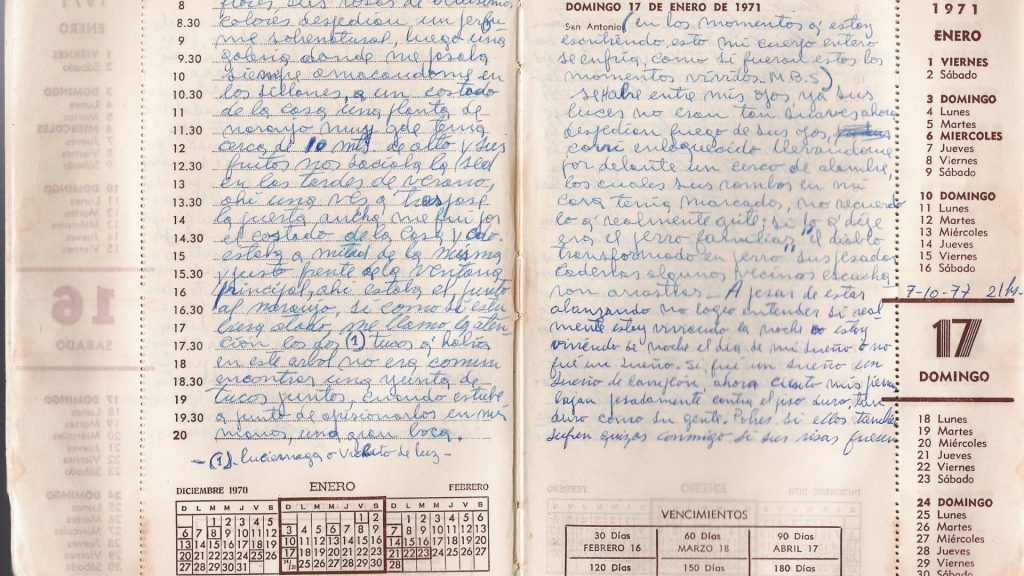 8 flores, sus rosas de
colores despedían un perfu
9 me sobrenatural, luego una
9.30 galería donde me posaba
siempre en
10.30 los sillones, a un costado
11 de la casa una planta de
11.30 naranjo muy gde tenía
12 cerca de 10 mts de alto y sus
frutos nos saciaba la sed
13 en las tardes de verano,
13.30 ahí una vez a
14 la puerta ancha me fui por
14.30 el costado de la casa y cdo.
15 estaba a mitad de la misma
15.30 y justo frente de la ventana
16 principal, ahí estaba el
16.30 naranjo, si como si
17 me llamo la aten
17.30 ción los dos (1) tucos q' había
18 en este arbol no era comun
18.30 encontrar una yunta de
19 tucos juntos, cuando estube
19.30 a punto de apresionarlos en mis
20 manos, una gran boca.
- (1). Luciernaga o Vichito de luz -
DICIEMBRE 1970 ENERO FEBRERO
D L M M J V S D L M M J V S D L M M J V S
1 2 3 4 5 1 2 1 2 3 4 5 6
6 7 8 9 10 11 12 3 4 5 6 7 8 9 7 8 9 10 11 12 13
13 14 15 16 17 18 19 10 11 12 13 14 15 16 14 15 16 17 18 19 20
20 21 22 23 24 25 26 17 18 19 20 21 22 23 21 22 23 24 25 26 27
27 28 29 30 31 24/31 25 26 27 28 29 30 28
DOMINGO 17 DE ENERO DE 1971
San Antonio (en los momentos q' estoy
escribiendo, esto mi cuerpo entero
se enfría, como si fueran estos los
momentos vividos. M.B.S)
se abre entre mis ojos, ya sus
luces no eran tan suaves ahora
despedían fuego de sus ojos,
corrí enloquecido llevandome
por delante un cerco de alambre,
los cuales sus rombos en mi
cara tenía marcados, no recuerdo
lo q' realmente grité; si lo q' dije
era el perro familiar, "el diablo
transformado en perro" sus pesadas
cadenas algunos vecinos escucha
ron arrastrar - A pesar de estar
no logro entender si real
mente estoy viviendo la noche o estoy
viviendo de noche el día de mi sueño o no
fué un sueño. Si, fué un sueño un
sueño de campeón, ahora cuanto mis
pesadamente contra el piso duro, tan
duro como su gente. Pobres si ellos también
sufren quizas conmigo si sus risas fuesen
1971
ENERO
1 VIERNES
2 Sábado
3 DOMINGO
4 Lunes
5 Martes
6 MIERCOLES
7 Jueves
8 Viernes
9 Sábado
10 DOMINGO
11 Lunes
12 Martes
13 Miércoles
14 Jueves
15 Viernes
16 Sábado
7-10-77
17
DOMINGO
18 Lunes
19 Martes
20 Miércoles
21 Jueves
22 Viernes
23 Sábado
24 DOMINGO
25 Lunes
26 Martes
27 Miércoles
28 Jueves
29 Viernes
30 Sábado
VENCIMIENTOS
30 Días 60 Días 90 Días
FEBRERO 16 MARZO 18 ABRIL 17
120 Días 150 Días 180 Días